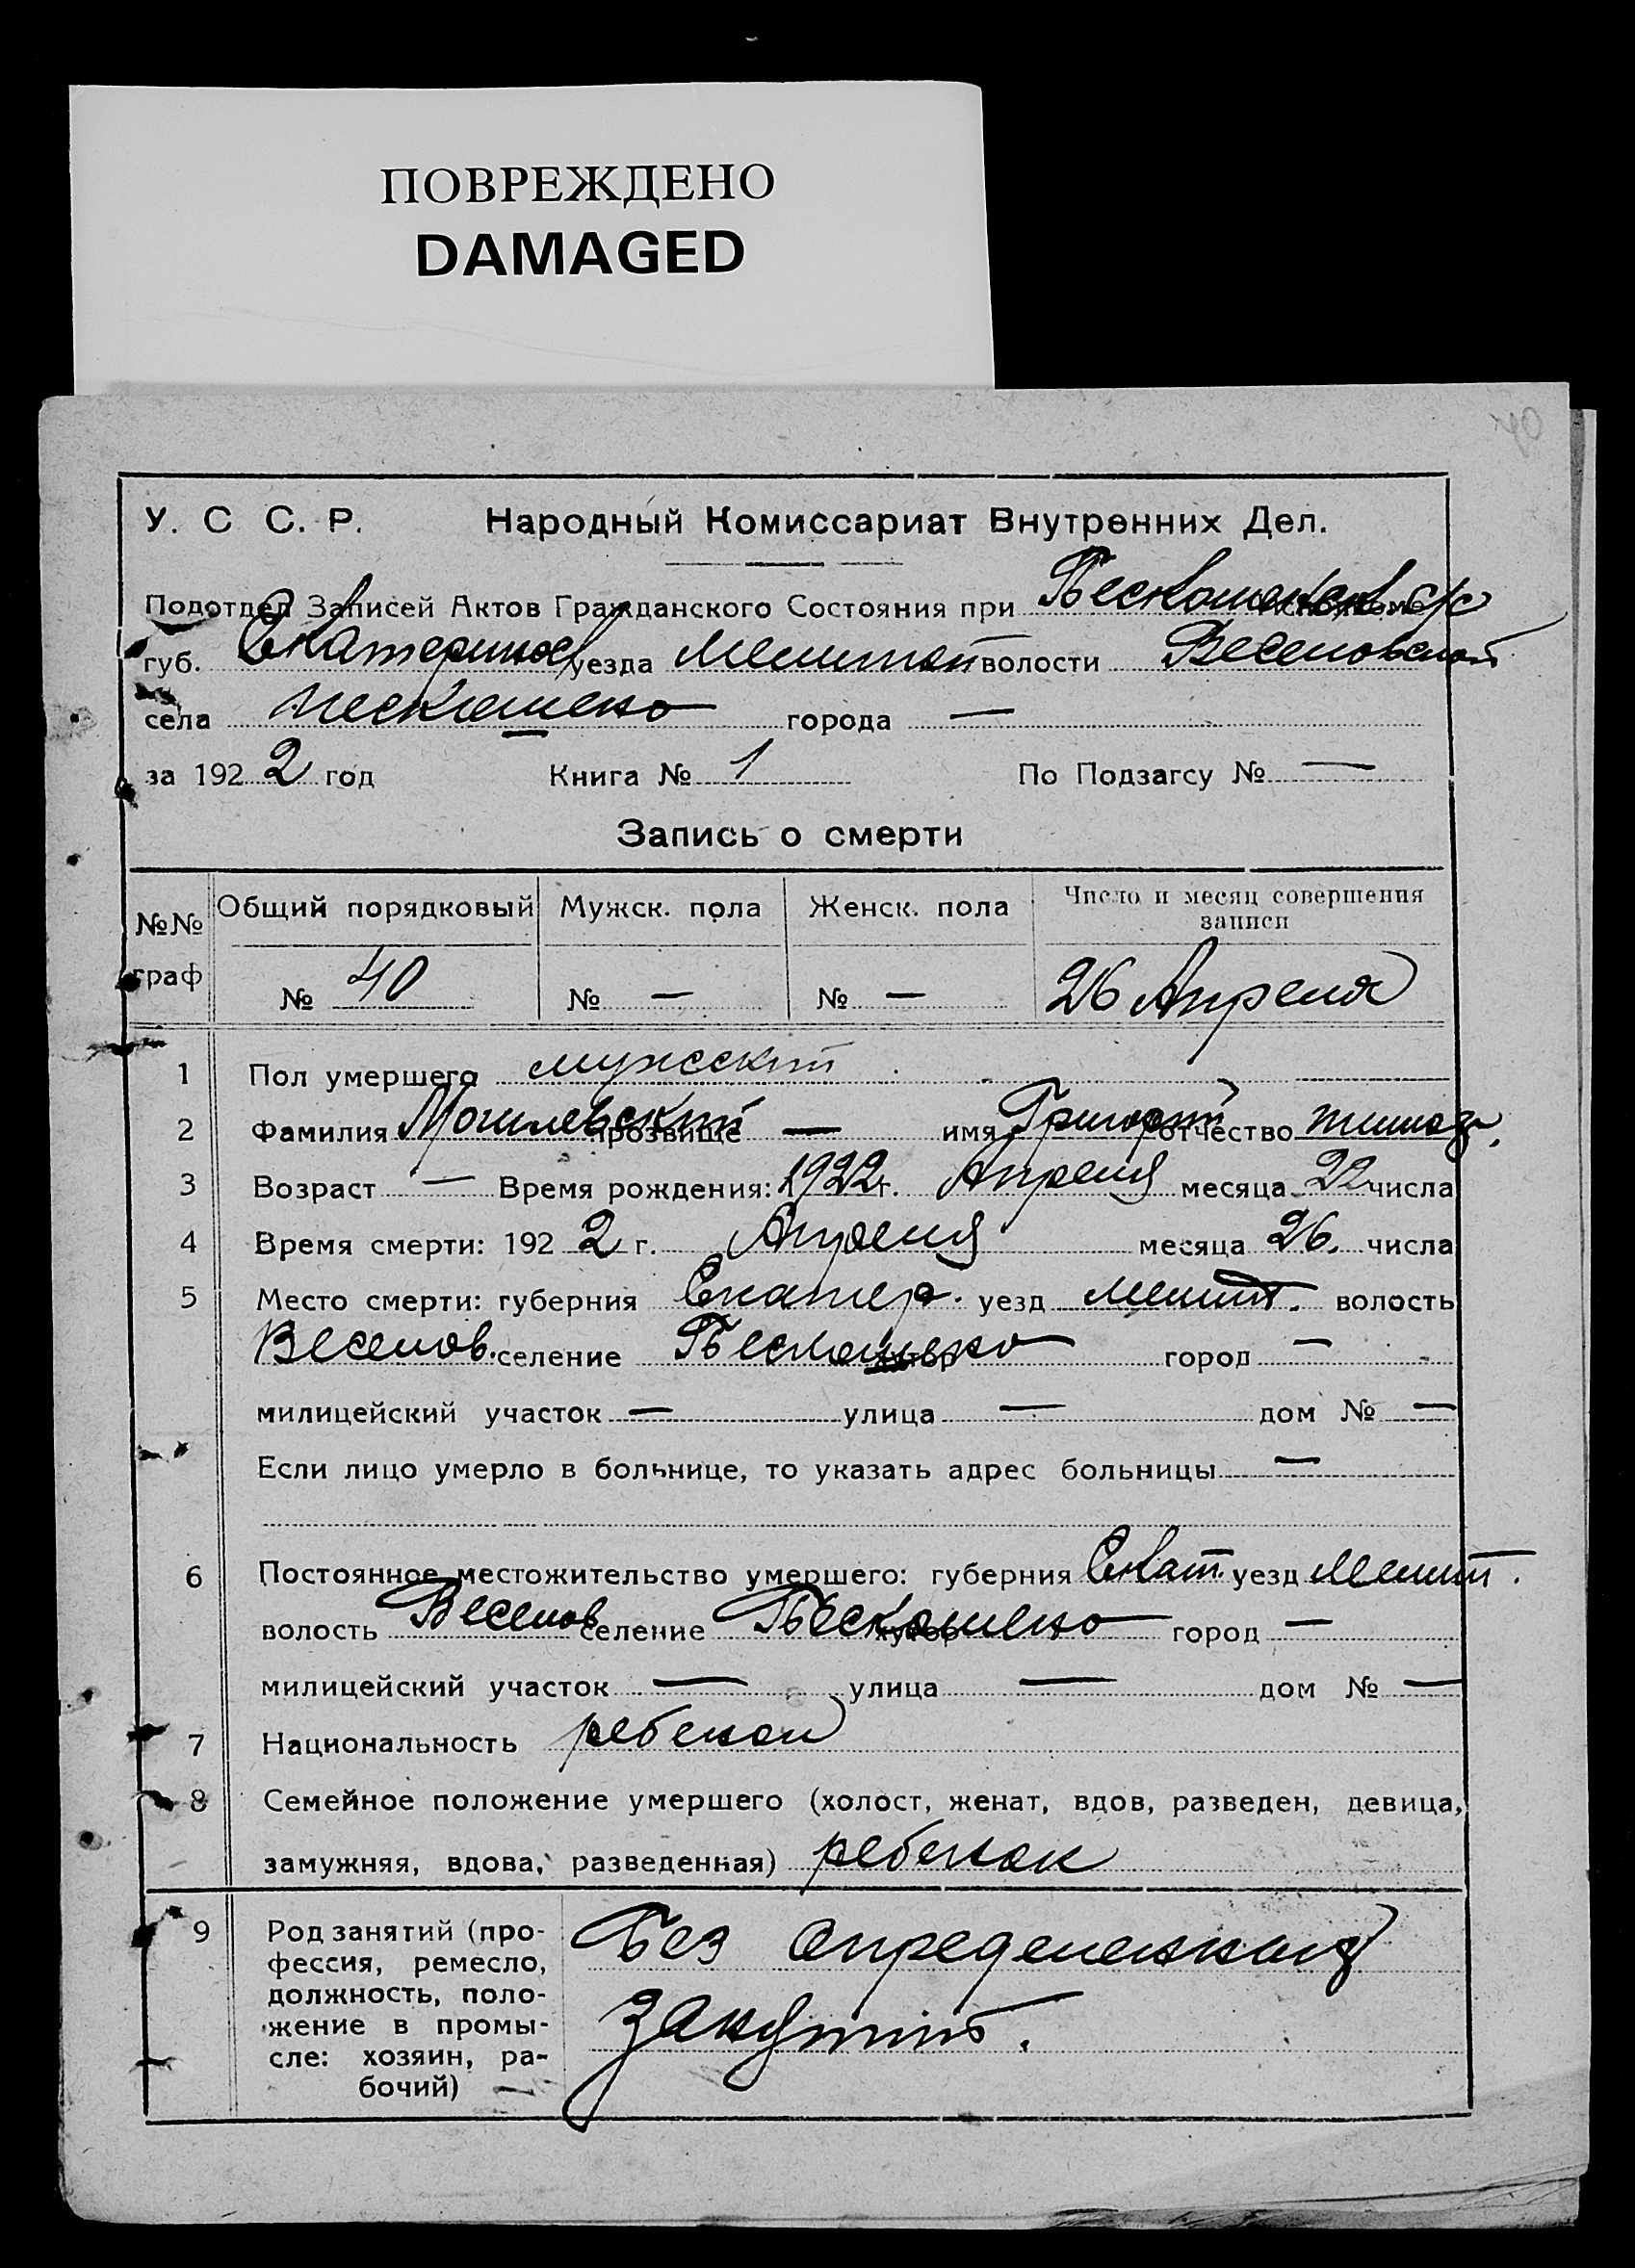 ПОВРЕЖДЕНО
DAMAGED
У. С С. Р. Народный Комиссариат Внутренних Дел.
Подотдел Записей Актов Гражданского Состояния при с/с
губ. Екатеринос уезда Мелитоп волости Веселовской
села города —
за 1922 год Книга № 1 По Подзагсу № —
Запись о смерти
№№ граф Общий порядковый Мужск. пола Женск. пола Число и месяц совершения записи
№ 40 № — № — 26 Апреля
1 Пол умершего мужеский
2 Фамилия Могилевский прозвище — имя Григорий отчество
3 Возраст — Время рождения: 1922 г. Апреля месяца 22 числа
4 Время смерти: 1922 г. Апреля месяца 26. числа
5 Место смерти: губерния Екатер. уезд Мелит. волость
Веселов. селение город —
милицейский участок — улица — дом № —
Если лицо умерло в больнице, то указать адрес больницы —
6 Постоянное местожительство умершего: губерния Екат. уезд Мелит.
волость Веселов селение город —
милицейский участок — улица — дом № —
7 Национальность ребенок
8 Семейное положение умершего (холост, женат, вдов, разведен, девица,
замужняя, вдова, разведенная) ребенок
9 Род занятий (про-
фессия, ремесло,
должность, поло-
жение в промы-
сле: хозяин, ра-
бочий) —
Без определенных
занятий.